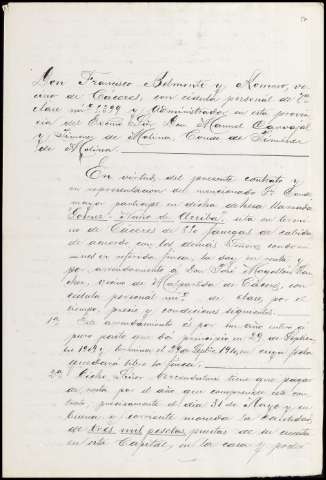 Don Francisco Belmonte y Romero, ve-
cino de Cáceres, con cédula personal de 7ª
clase nº 1299 y Administrador en esta provin-
cia del Excmo Sr. Don Manuel Carvajal
y Jimenez de Molina, Conde de Jimenez
de Molina.
En virtud del presente contrato y
en representación del mencionado Sr. Conde
mayor partícipe en dicha dehesa llamada
de Arriba", sita en térmi-
no de Cáceres de fanegas de cabida
de acuerdo con los demás Señores condómi-
nes en referida finca, la doy en renta y
por arrendamiento a Don José Magallán Sán-
chez, vecino de Malpartida de Cáceres, con
cédula personal nº de clase, por el
tiempo, precio y condiciones siguientes:
1ª Este arrendamiento es por un año entero y
puro pasto que da principio en 29 de Septiem-
bre y termina el 29 de Septbre en cuya fecha
quedará libre la finca.
2ª Dicho Señor Arrendatario tiene que pagar
de renta por el año que comprende este con-
trato, precisamente el día 31 de Mayo y en
buena y corriente moneda la cantidad
de tres mil pesetas, puestas de su cuenta
en esta Capital, en la casa y poder